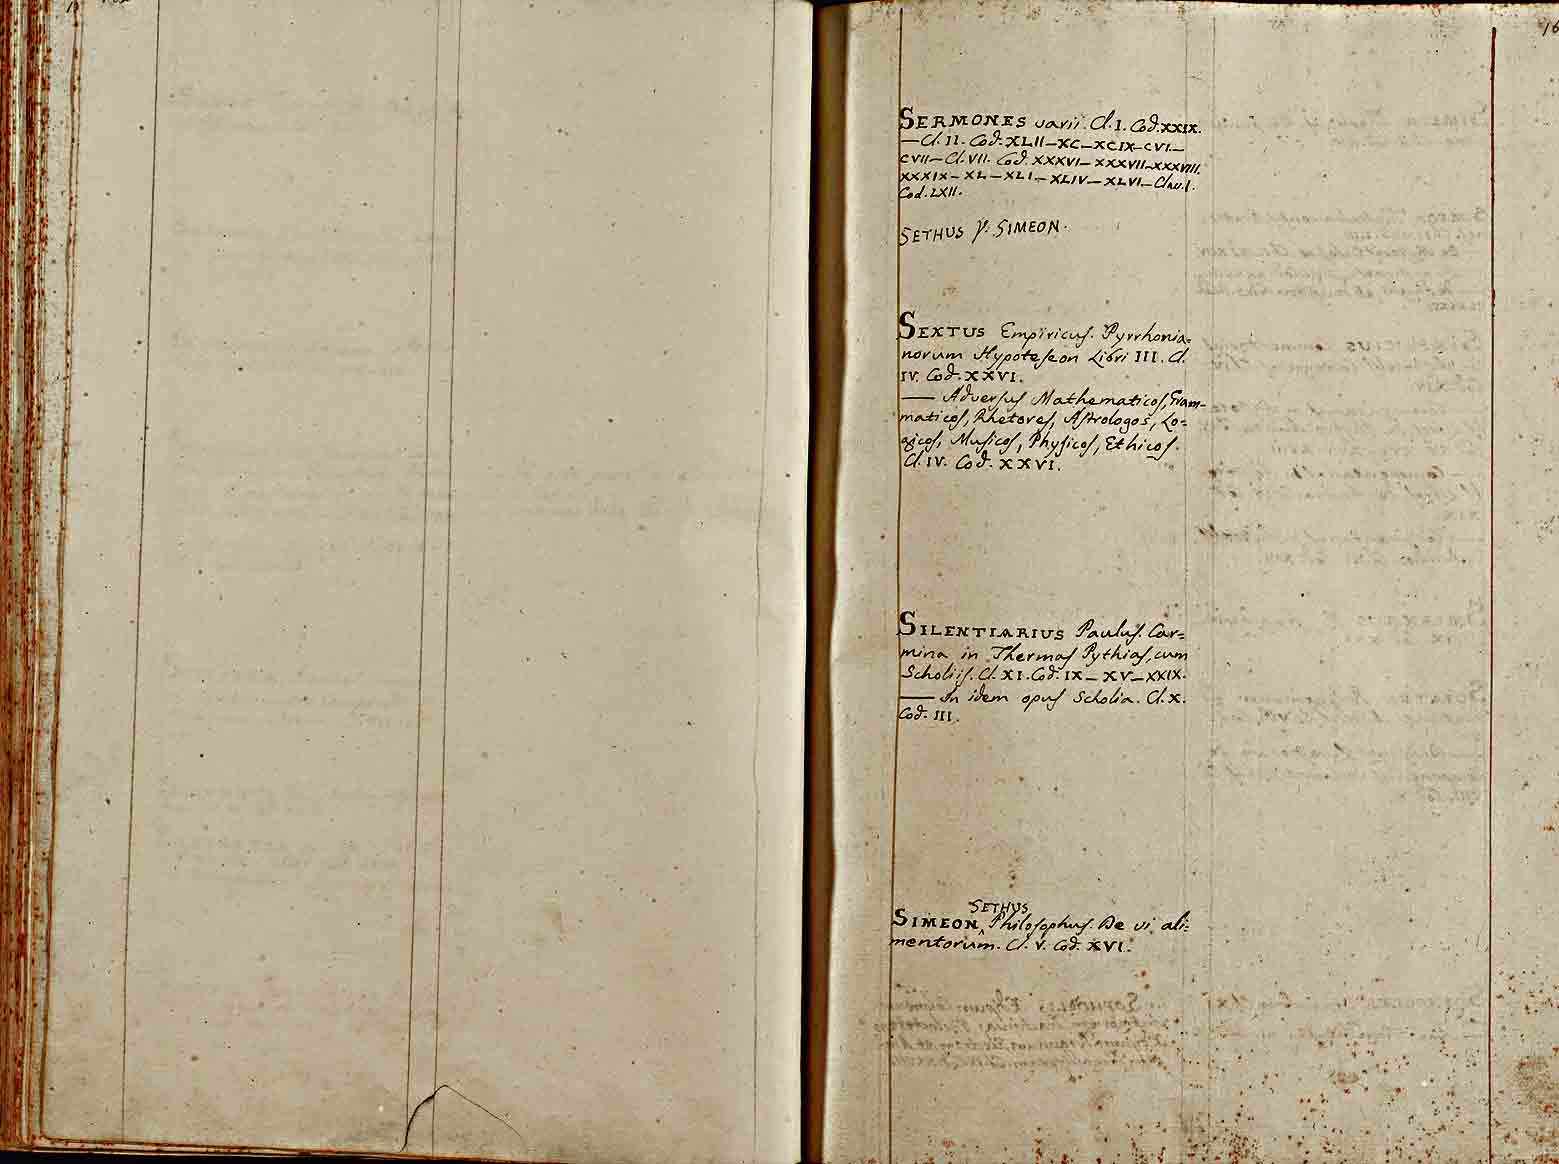 SERMONES varii. Cl. I. Cod. XXIX.
— Cl. II. Cod. XLII — XC — XCIX — CVI —
CVII — Cl. VII. Cod. XXXVI — XXXVII — XXXVIII.
XXXIX — XL — XLI — XLIV — XLVI — Clas. I.
Cod. LXII.
SETHUS V. SIMEON.
SEXTUS Empiricus. Pyrrhonia=
norum Hypoteseon Libri III. Cl.
IV. Cod. XXVI.
— Adversus Mathematicos, Gram=
maticos, Rhetores, Astrologos, Lo=
gicos, Musicos, Physicos, Ethicos.
Cl. IV. Cod. XXVI.
SILENTIARIUS Paulus. Car=
mina in Thermas Pythias, cum
Scholiis. Cl. XI. Cod. IX — XV — XXIX.
— In idem opus Scholia. Cl. X.
Cod. III.
SETHUS
SIMEON, Philosophus. De vi ali=
mentorum. Cl. V. Cod. XVI.